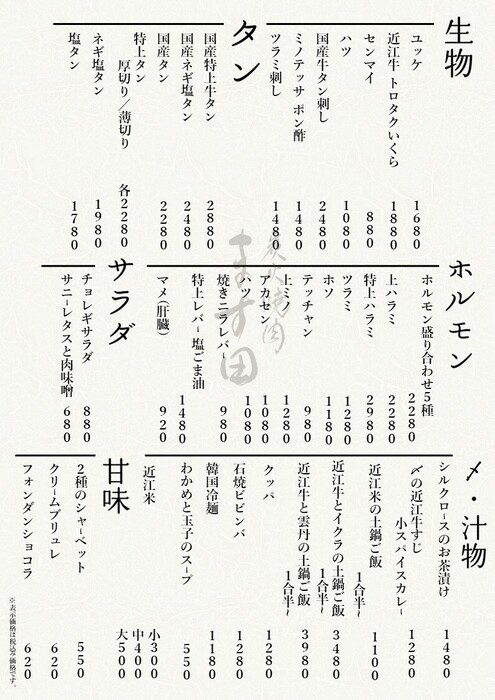 生物
ユッケ 1680
近江牛 トロタクいくら 1880
センマイ 880
ハツ 1080
国産牛タン刺し 2480
ミノテッサ ポン酢 1480
ツラミ刺し 1480
タン
国産特上牛タン 2880
国産ネギ塩タン 2480
国産タン 2280
特上タン
厚切り／薄切り 各2280
ネギ塩タン 1980
塩タン 1780
ホルモン
ホルモン盛り合わせ5種 2280
上ハラミ 2280
特上ハラミ 2980
ツラミ 1280
ホソ 1180
テッチャン 980
上ミノ 1280
アカセン 1080
ハツ 1080
焼きニラレバー 980
特上レバー 塩ごま油 1480
マメ(肝臓) 920
サラダ
チョレギサラダ 880
サニーレタスと肉味噌 680
〆・汁物
シルクロースのお茶漬け 1480
〆の近江牛すじ
小スパイスカレー 1280
近江米の土鍋ご飯
1合半~ 1100
近江牛とイクラの土鍋ご飯
1合半~ 3480
近江牛と雲丹の土鍋ご飯
1合半~ 3980
クッパ 1280
石焼ビビンバ 1280
韓国冷麺 1180
わかめと玉子のスープ 550
近江米
小300
中400
大500
甘味
2種のシャーベット 550
クリームブリュレ 620
フォンダンショコラ 620
※表示価格は税込み価格です。
炭火焼肉
ます田